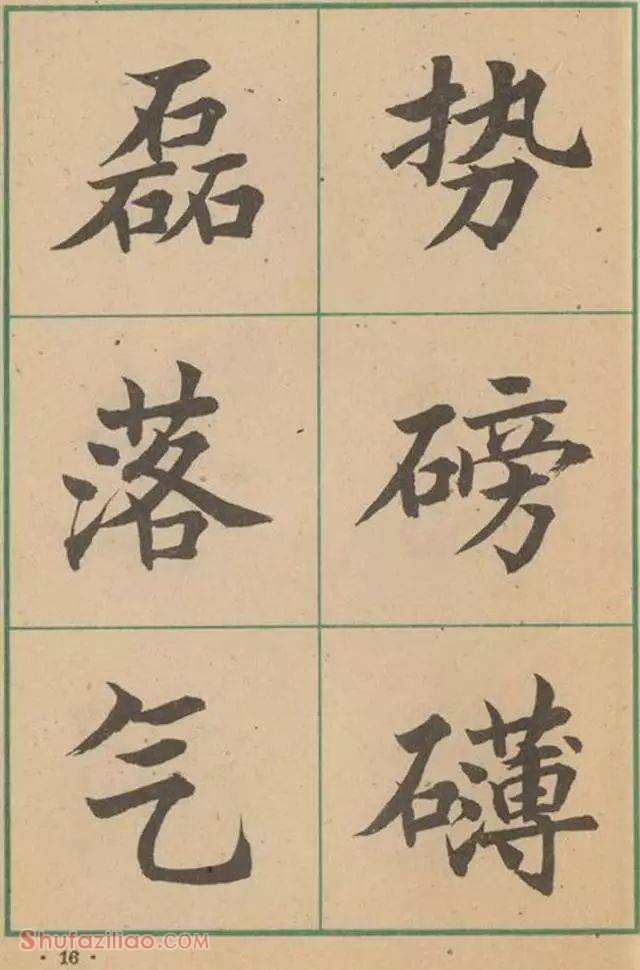 势磅礴
磊落气
Shufaziliao.com
· 16 ·